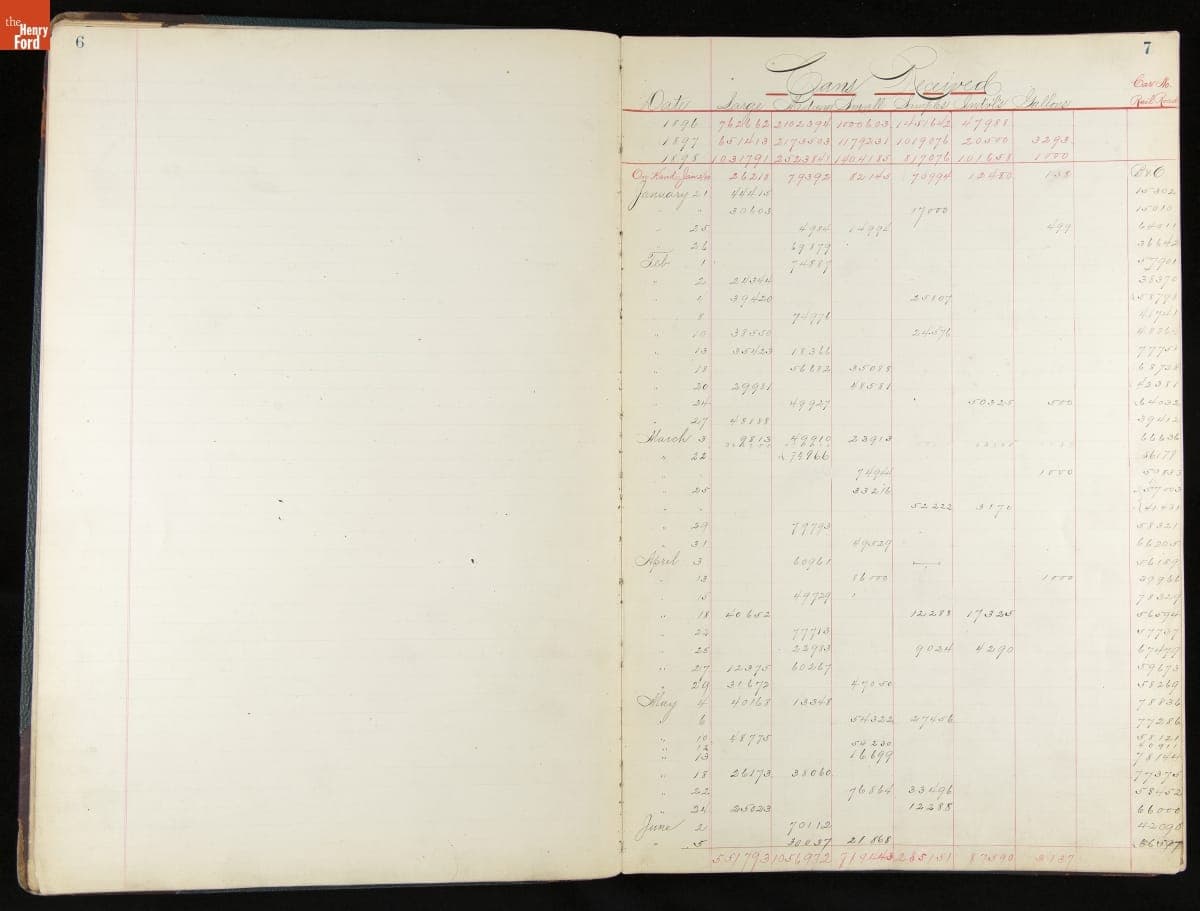 the
Henry
Ford
6
7
Cans Received
Car No.
Date Large Medium Small Gallons Rail Road
1896 762662 2102394 1000603 1451642 47988
1897 651413 2173503 1179231 1019076 20500 3293
1898 1031791 2523841 1404185 817076 101658 1000
On Hand 26218 79392 82145 70994 12480 138 B & O
January 21 44415 15302
" " 30603 17000 15010
" 25 4984 14994 499 64011
" 26 69879 36642
Feb 1 74887 57901
" 2 24344 38370
" 4 39420 25807
" 8 74976 41741
" 10 38550 24576
" 13 35423 18366 77751
" 18 56682 35088 68728
" 20 29981 48581 42381
" 24 49927 50325 500 64032
" 27 48188 39412
March 3 9813 49910 23913 66636
" 22 73966 36178
" 74944 1000 50883
" 25 33216
" " 52222 3170 41431
" 29 77793 58321
" 31 49529 66205
April 3 60961 56189
" 13 86000 1000 29966
" 15 49729 78329
" 18 40652 12288 17325 56594
" 22 77713 57737
" 25 22983 9024 4290 67479
" 27 12375 60267 59673
" 29 31672 47050 58269
May 4 40168 13348 78836
" 6 54322 27456 77286
" 10 48775 58121
" 12 54230 40911
" 13 16699 78144
" 18 26173 38060 77375
" 22 76864 33496 58452
" 24 25023 12288 66000
June 2 70112 42098
" 5 30037 21868 36597
551793 1056972 819143 285151 87590 3137